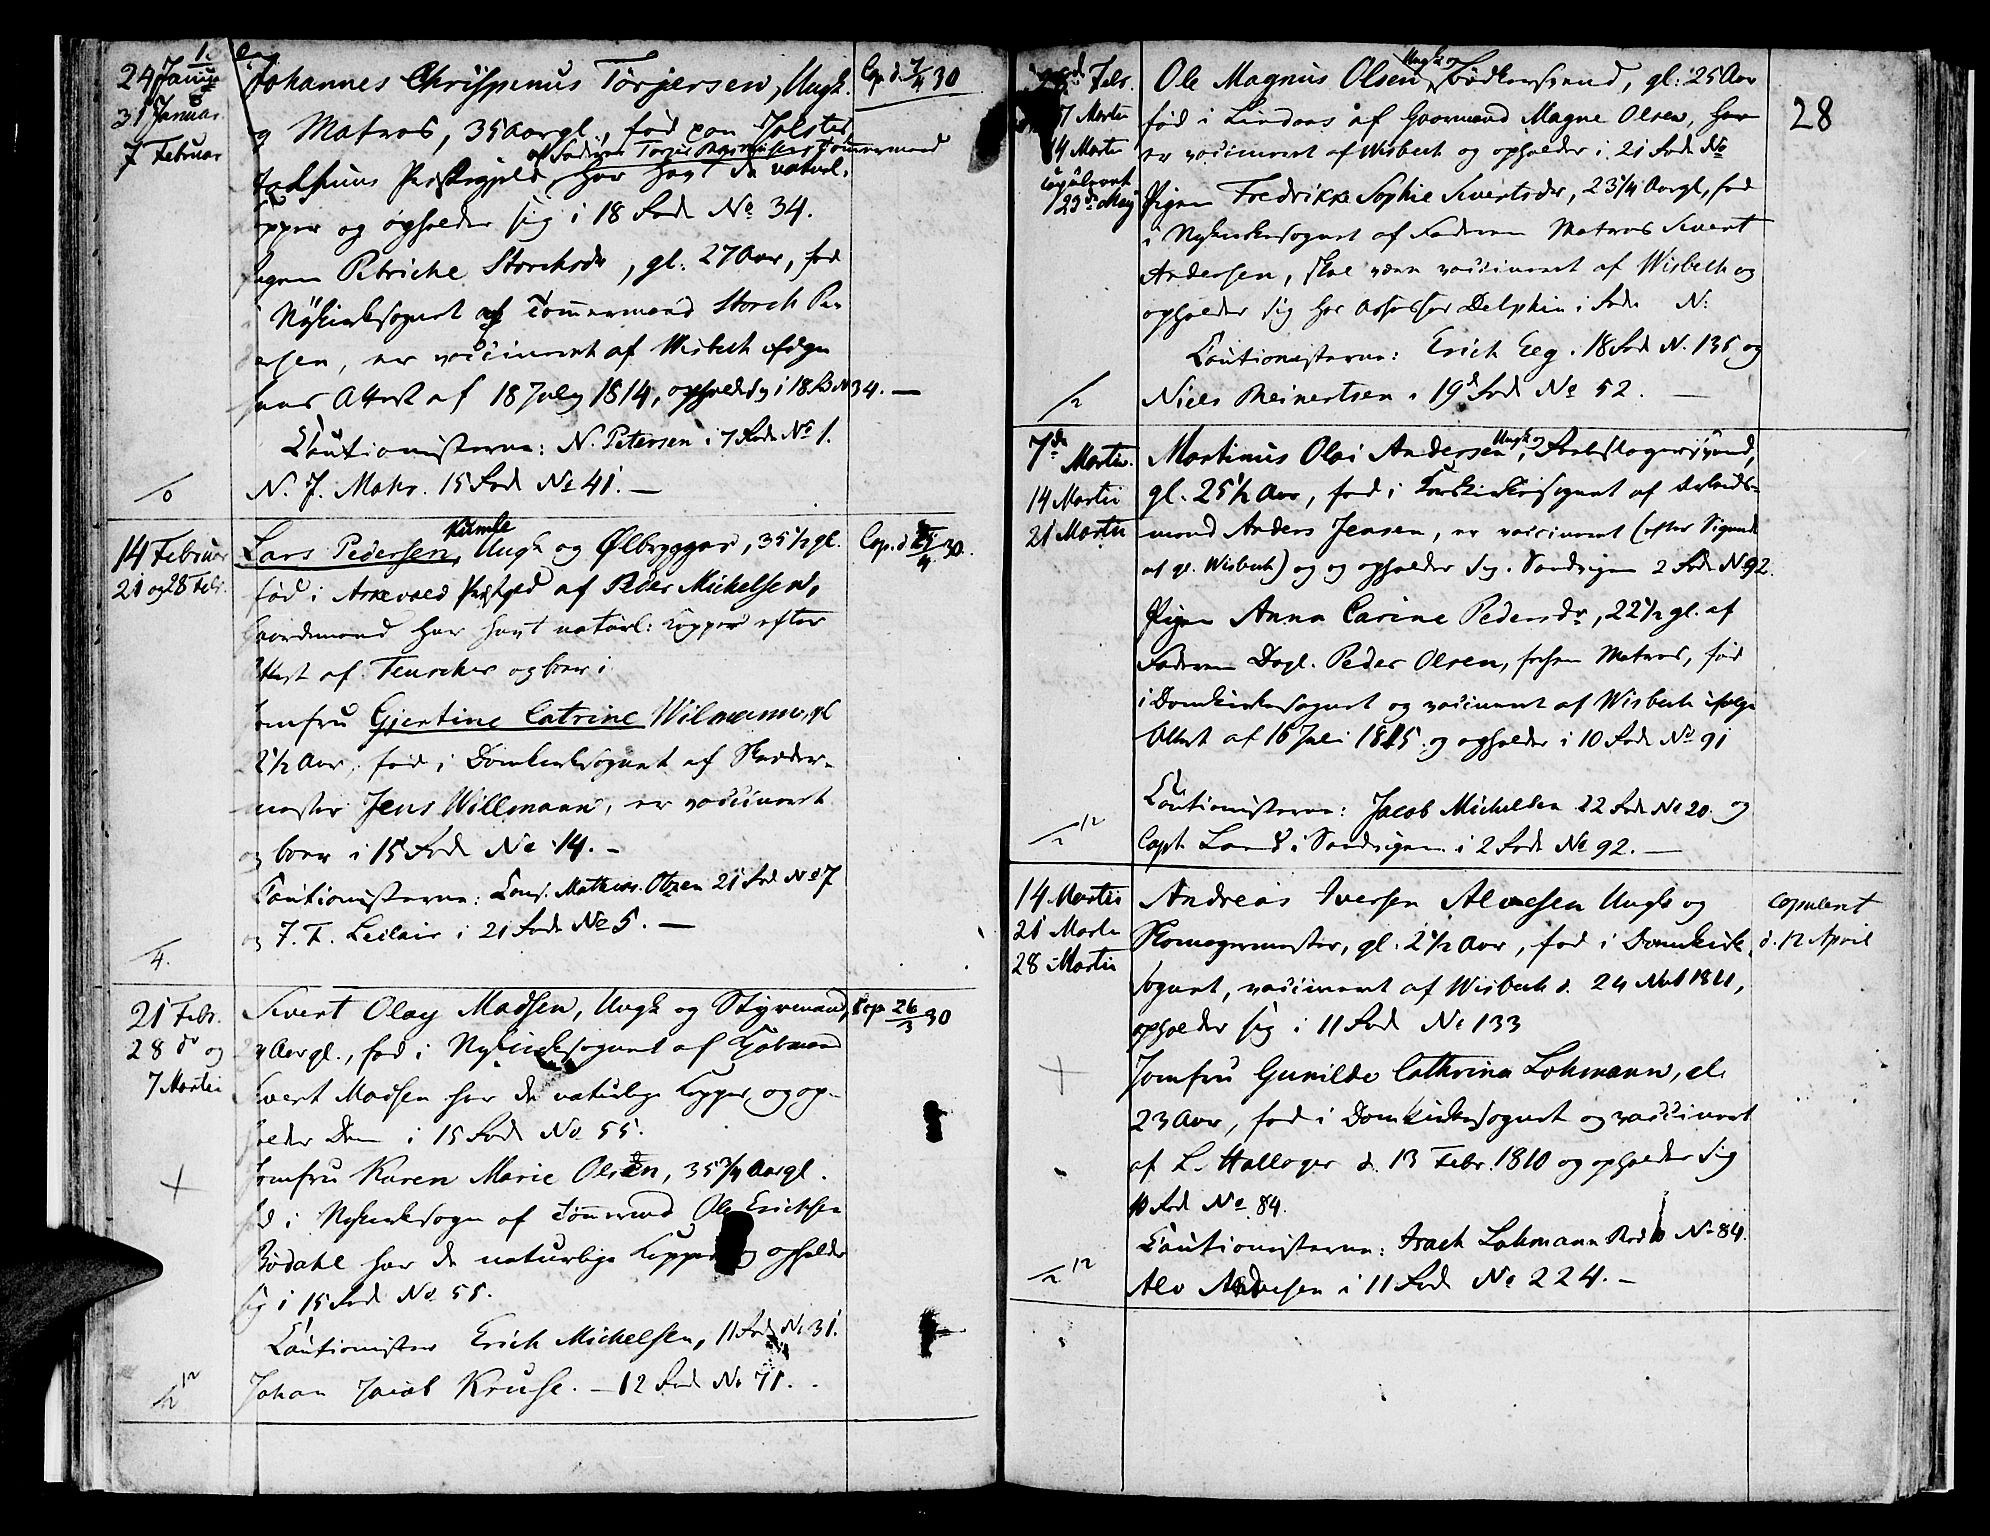 24 Janu
31 Januar
7 Februar
Johannes Chrispinus Torjersen, Ungk.
og Matros, 35 Aar gl., fød paa Jølster
af Faderen Torjus Rasmussen Tømmermand
Præstegjeld har havt de naturl.
Kopper og opholder sig i 18 Rode No 34.
Pigen Petricke Storchsdr, gl. 27 Aar, fød
i Nykirkesognet af Tømmermand Storch Pe
dersen, er vaccineret af Wisbech ifølge
hans Attest af 18 July 1814, opholder sig i 18 R No 34. —
Cautionisterne: N. Petersen i 7 Rode No 1.
N. J. Mohr. 15 Rode No 41. —
Cop. d. 7/4 30
14 Februar
21 og 28 Febr.
Lars Pedersen Ungk og Ølbrygger, 35 1/2 gl.
fød i Arnevaed Præstgjed af Peder Michelsen,
Gaardmand har havt naturl: Kopper efter
Attest af Teuscher og boer i
Jomfru Gjertine Catrine Wilmann, gl
2 1/2 Aar, fød i Domkirkesognet af Skredder-
mester Jens Willmann, er vaccineret
og boer i 15 Rode No 14. —
Cautionisterne: Cons. Mathias Olsen 21 Rode No 7
og J. F. Leclair i 21 Rode No 5. —
4.
21 Febr.
28 do og
7 Martii
Sivert Olay Madsen, Ungk og Styrmand,
24 Aar gl., fød i Nykirkesognet af Kjøbmand
Sivert Madsen har de naturlige Kopper, og op-
holder Dem i 15 Rode No 55.
Jomfru Karen Marie Olsen, 35 3/4 Aar gl.
fød i Nykirkesogn af Tømmermd Ole Erichsen
Rødahl har de naturlige Kopper og opholder
sig i 15 Rode No 55.
Cautionister Erich Michelsen, 11 Rode No 31.
Johan Jacob Kruse. — 12 Rode No 71.
Cop 26/3 30
28
Febr.
7 Martii
14 Martii
Copuleret
23 de May
Ole Magnus Olsen, Ungk og Bødkersvend, gl: 25 Aar
fød i Lindaas af Gaarmand Magne Olsen, har
er vaccineret af Wisbech og opholder i 21 Rode No
Pigen Fredrikke Sophie Sivertsdr, 23 1/4 Aar gl, fød
i Nykirkesognet af Faderen Matros Sivert
Andersen, skal være vaccineret af Wisbech og
opholder sig hos Assessor Delphin i Rode N:
Cautionisterne: Erich Eeg. 18 Rode N. 135 og
Niels Meinertsen i 19 Rode No 52. —
7de Martii.
14 Martii
21 Martii
Martinus Olai Andersen, Ungk og
gl. 25 1/2 Aar, fød i Korskirkesognet af Arbeids-
mand Anders Jensen, er vaccineret (efter Sigende
af gl. Wisbech) og og opholder sig i Sandvigen 2 Rode No 92.
Pigen Anna Carine Pedersdr, 22 1/2 gl. af
Faderen Peder Olsen, Matros, fød
i Domkirkesognet og vaccineret af Wisbech ifølge
Attest af 16 Juli 1815 og opholder i 10 Rode No 91
Cautionisterne: Jacob Michelsen 22 Rode No 20. og
Capt. Lund i Sandvigen i 2 Rode No 92. —
14 Martii
21 Martii
28 Martii
Andreas Iversen Alvesen Ungk og
Skomagermester, gl. 2 1/2 Aar, fød i Domkirke
sognet, vaccineret af Wisbech d. 24 1811,
opholder sig i 11 Rode No 133
Jomfru Gunilde Cathrina Lohmann, gl.
23 Aar, fød i Domkirkesognet og vaccineret
af L. Hallager d. 13 Febr. 1810 og opholder sig
10 Rode No 84.
Cautionisterne: Isach Lohmann Rode 10 No 84.
Alv Alvesen i 11 Rode No 224. —
Copuleret
d. 12 April